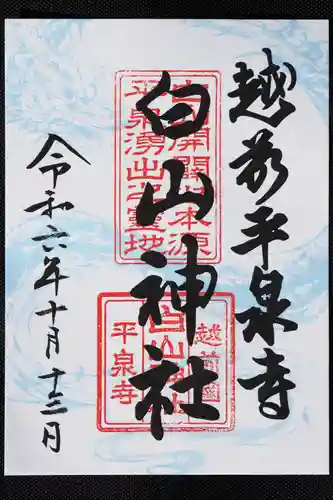 越前平泉寺
白山神社
令和六年十月十三日
平泉湧出之靈地
越前國
白山神社
平泉寺